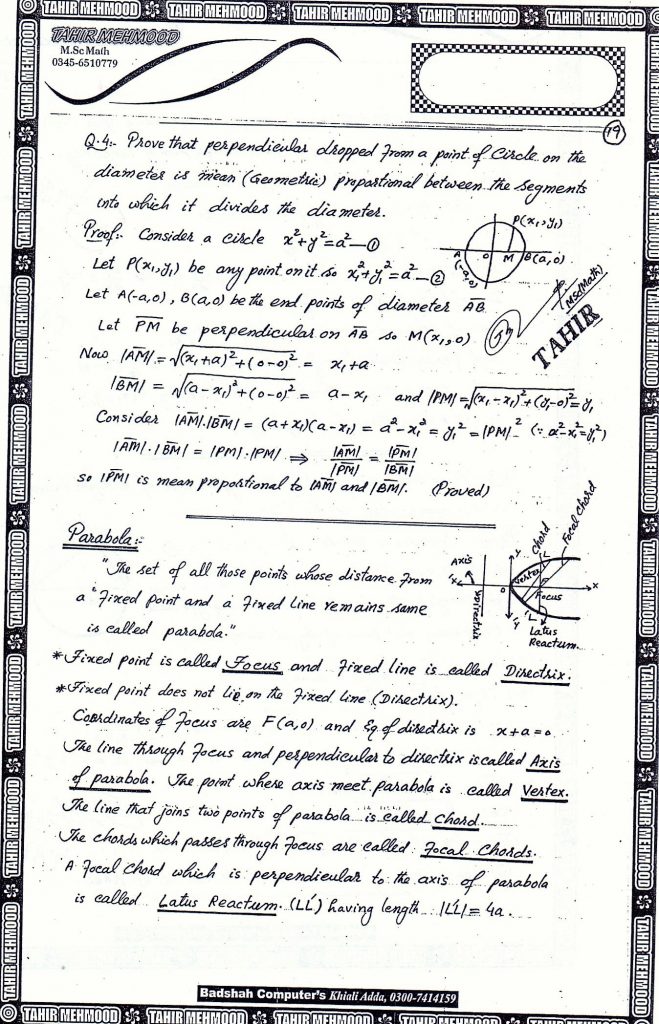 TAHIR MEHMOOD TAHIR MEHMOOD TAHIR MEHMOOD TAHIR MEHMOOD TAHIR MEHMOOD
TAHIR MEHMOOD
M.Sc Math
0345-6510779
19
Q.4:- Prove that perpendicular dropped from a point of Circle on the
diameter is mean (Geometric) proportional between the segments
into which it divides the diameter.
Proof:- Consider a circle x²+y²=a² —①
Let P(x₁,y₁) be any point on it so x₁²+y₁²=a² —②
Let A(-a,0), B(a,0) be the end points of diameter A̅B̅
Let P̅M̅ be perpendicular on A̅B̅ so M(x₁,0)
P(x₁,y₁)
A O M B(a,0)
(-a,0)
MSc(Math)
TAHIR
Now |A̅M̅| = √((x₁+a)²+(0-0)²) = x₁+a
|B̅M̅| = √((a-x₁)²+(0-0)²) = a-x₁ and |PM| = √((x₁-x₁)²+(y₁-0)²) = y₁
Consider |A̅M̅|.|B̅M̅| = (a+x₁)(a-x₁) = a²-x₁² = y₁² = |PM|² (∵ a²-x₁²=y₁²)
|A̅M̅|.|B̅M̅| = |PM|.|PM| ⇒ |A̅M̅|/|P̅M̅| = |P̅M̅|/|B̅M̅|
so |P̅M̅| is mean proportional to |A̅M̅| and |B̅M̅|. (Proved)
Parabola:-
"The set of all those points whose distance from
a "fixed point and a fixed Line remains same
is called parabola."
Axis
Directrix
Vertex
Chord
Focal chord
Focus
Latus
Reactum.
*Fixed point is called Focus and fixed line is called Directrix.
*Fixed point does not lie on the fixed line (Directrix).
Coordinates of Focus are F(a,0) and Eq of directrix is x+a=0
The line through focus and perpendicular to directrix is called Axis
of parabola. The point where axis meet parabola is called Vertex.
The line that joins two points of parabola is called Chord.
The chords which passes through Focus are called Focal Chords.
A focal chord which is perpendicular to the axis of parabola
is called Latus Reactum. (LL′) having length |LL′| = 4a.
Badshah Computer's Khiali Adda, 0300-7414159
TAHIR MEHMOOD TAHIR MEHMOOD TAHIR MEHMOOD TAHIR MEHMOOD TAHIR MEHMOOD